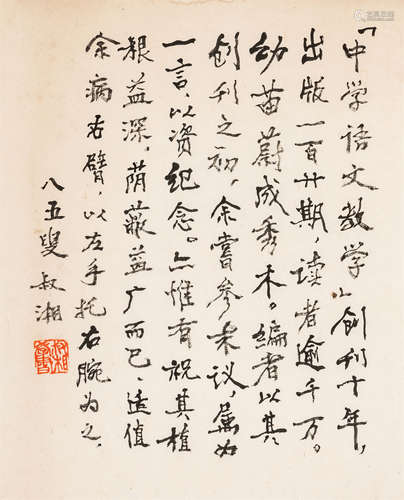 「中学语文教学」创刊十年，
出版一百廿期，读者逾千万。
幼苗蔚成秀木。编者以其
创刊之初，余尝参末议，属为
一言，以资纪念。亦惟有祝其植
根益深，荫蔽益广而已、适值
余病右臂，以左手托右腕为之、
八五叟 叔湘